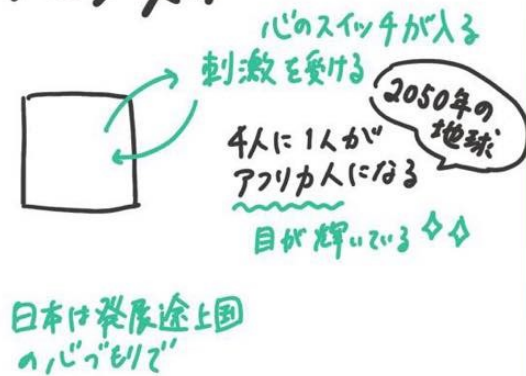 心のスイッチが入る
刺激を受ける
2050年の
地球
4人に1人が
アフリカ人になる
目が輝いている
日本は発展途上国
の心づもりで